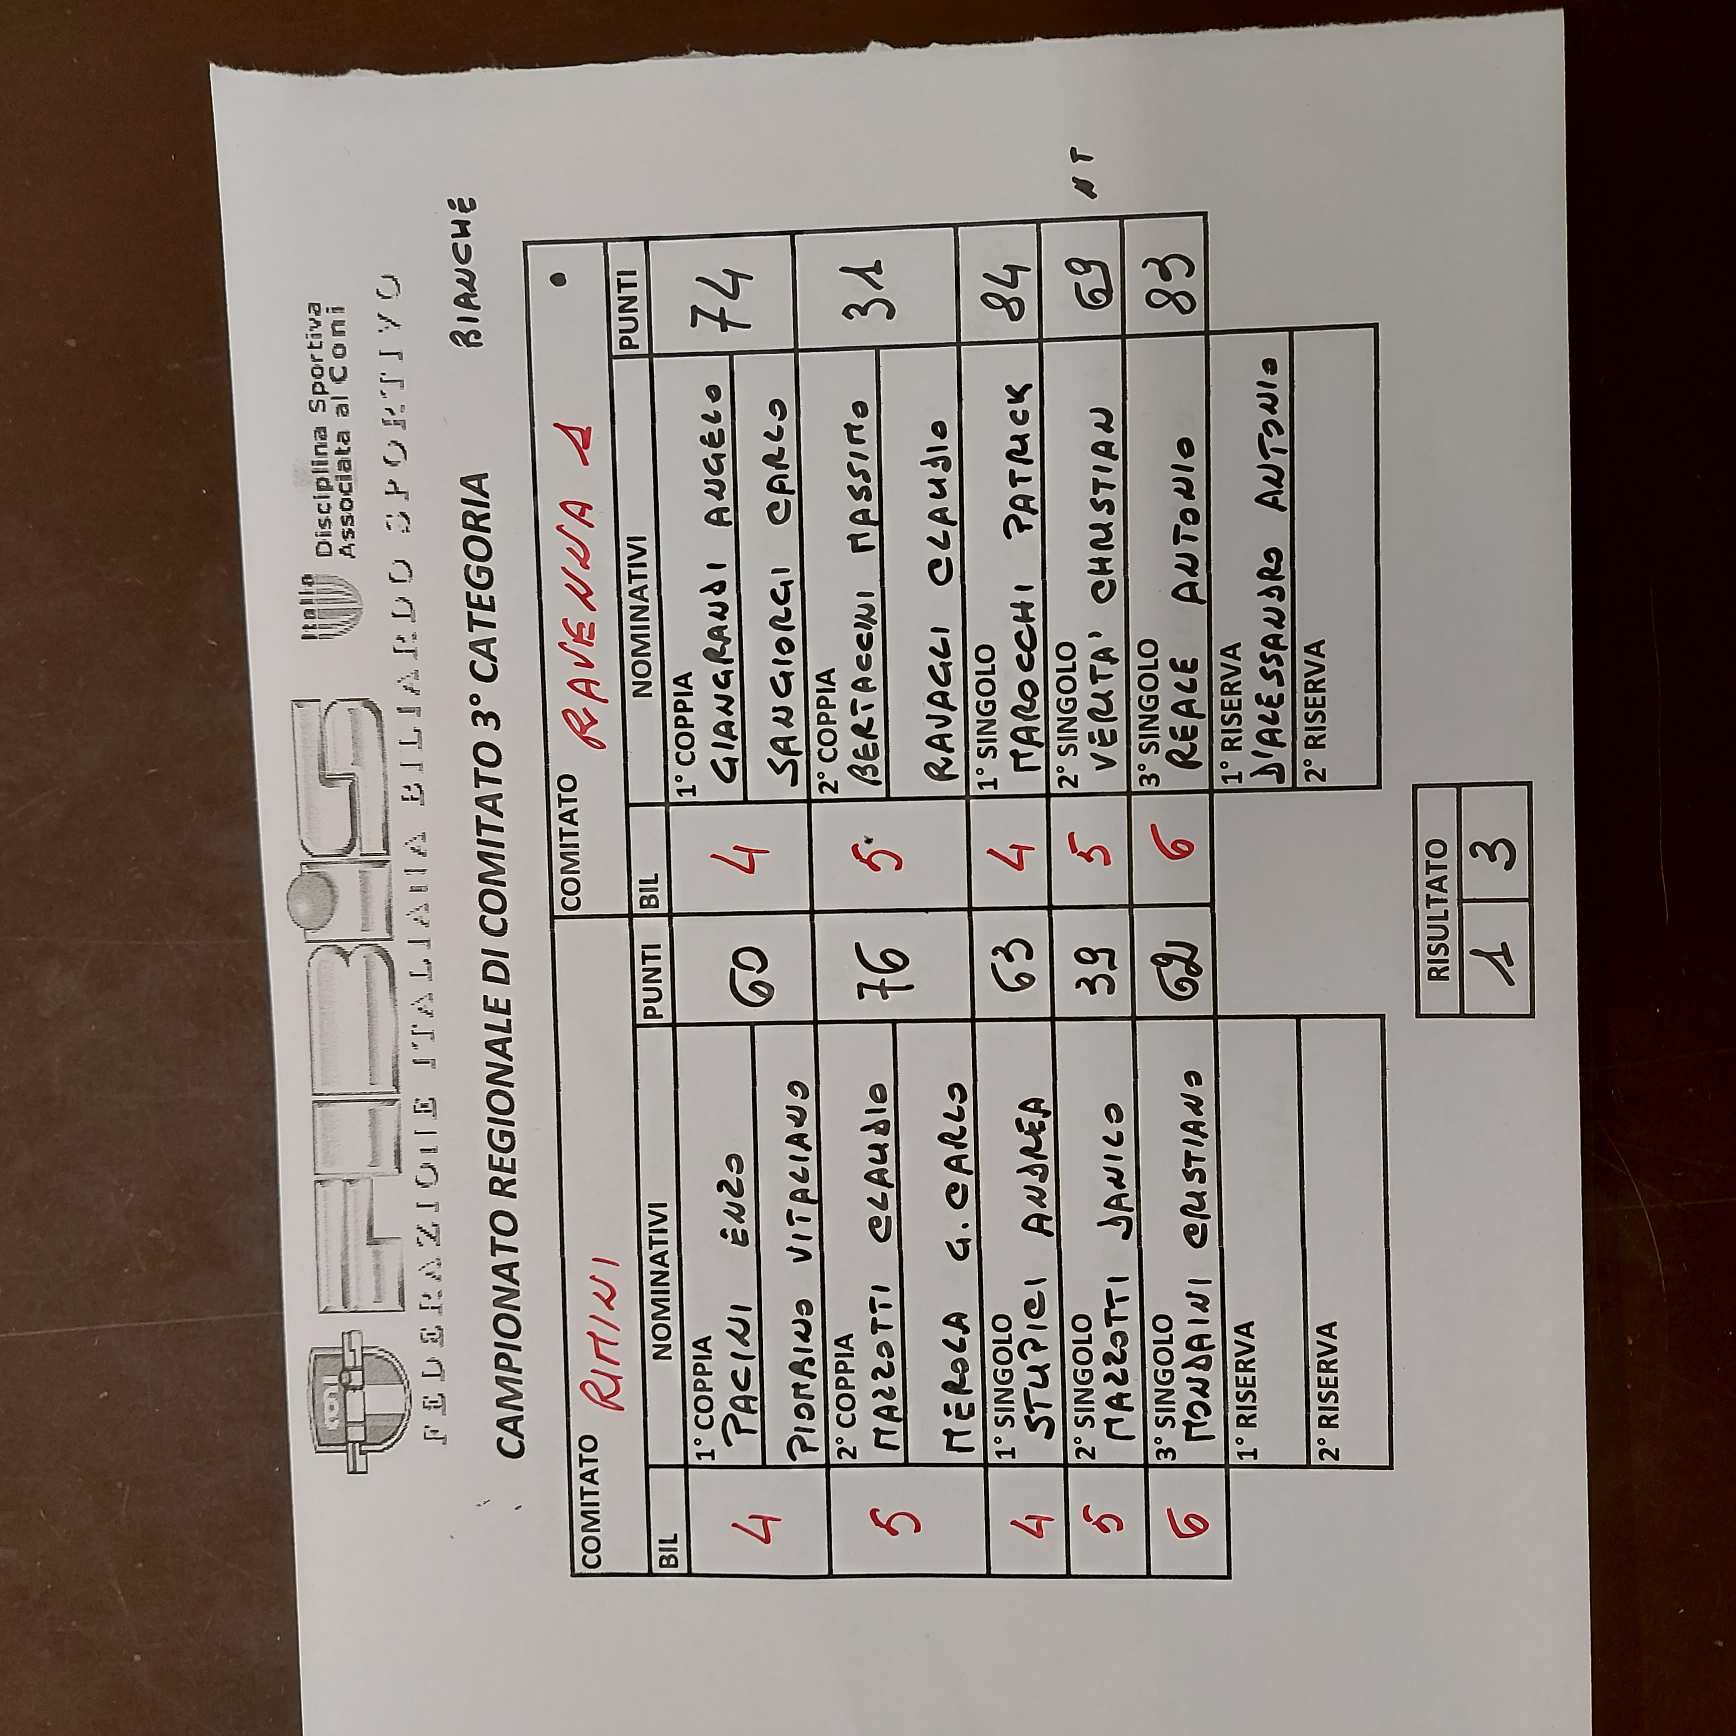 FIBiS
Italia
Disciplina Sportiva
Associata al Coni
FEDERAZIONE ITALIANA BILIARDO SPORTIVO
CAMPIONATO REGIONALE DI COMITATO 3° CATEGORIA BIANCHE
COMITATO RIMINI COMITATO RAVENNA 1 •
BIL NOMINATIVI PUNTI BIL NOMINATIVI PUNTI
1° COPPIA 1° COPPIA
4 PACINI ENZO 60 4 GIANGRANDI ANGELO 74
PIOMBINO VITALIANO SANGIORGI CARLO
2° COPPIA 2° COPPIA
5 MAZZOTTI CLAUDIO 76 5 BERTACCINI MASSIMO 31
MEROLA G. CARLO RAVAGLI CLAUDIO
1° SINGOLO 1° SINGOLO
4 STUPICI ANDREA 63 4 MAROCCHI PATRICK 84
2° SINGOLO 2° SINGOLO
5 MAZZOTTI DANILO 39 5 VERITA' CHRISTIAN 69 NT
3° SINGOLO 3° SINGOLO
6 MONDAINI CRISTIANO 62 6 REALE ANTONIO 83
1° RISERVA 1° RISERVA
D'ALESSANDRO ANTONIO
2° RISERVA 2° RISERVA
RISULTATO
1 3